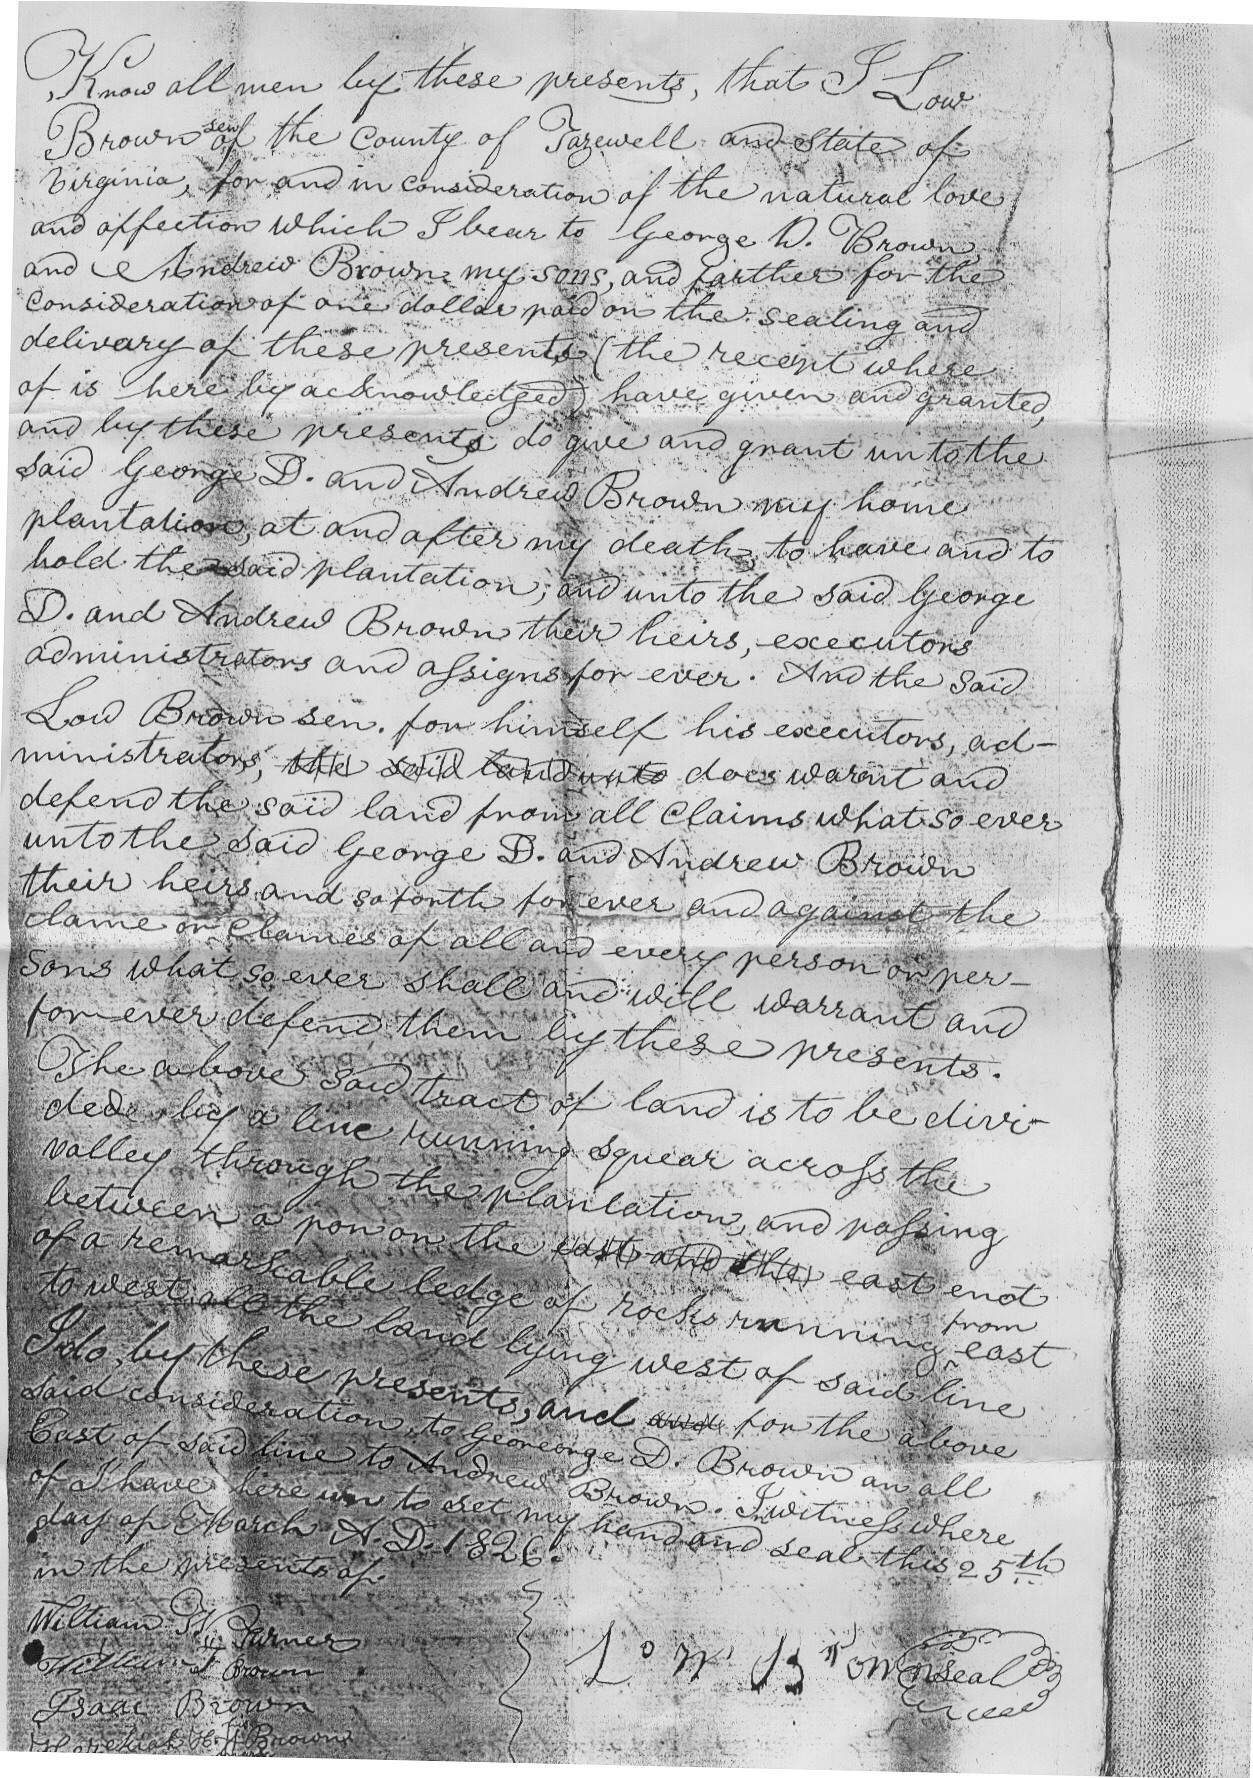 Know all men by these presents, that I Low
Brown sen of the County of Tazewell and State of
Virginia, for and in consideration of the natural love
and affection which I bear to George D. Brown
and Andrew Brown my sons, and farther for the
consideration of one dollar paid on the sealing and
delivary of these presents (the receipt where
of is here by acknowledged) have given and granted,
and by these presents do give and grant unto the
said George D. and Andrew Brown my home
plantation, at and after my death, to have and to
hold the said plantation, and unto the said George
D. and Andrew Brown their heirs, executors
administrators and assigns for ever. And the said
Low Brown sen. for himself his executors, ad-
ministrators, the said land unto does warnt and
defend the said land from all claims what so ever
unto the said George D. and Andrew Brown
their heirs and so forth for ever and against the
clame or clames of all and every person or per-
sons what so ever shall and will warrant and
for ever defend them by these presents.
The above said tract of land is to be divi-
ded by a line running squear across the
valley through the plantation, and passing
between a pon on the east and the east end
of a remarkable ledge of rocks running from east
to west all the land lying west of said line
I do, by these presents, and and for the above
said consideration, to Georeorge D. Brown an all
East of said line to Andrew Brown. In witness where
of I have here un to set my hand and seal this 25th
day of March A. D. 1826.
in the presents of
William Turner
William Brown
Isaac Brown
Hezekiah H. Brown
Low Brown Seal